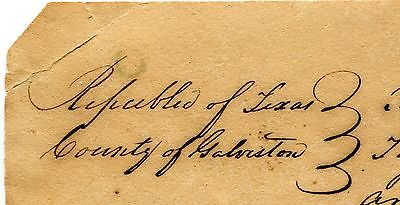 Republic of Texas
County of Galveston